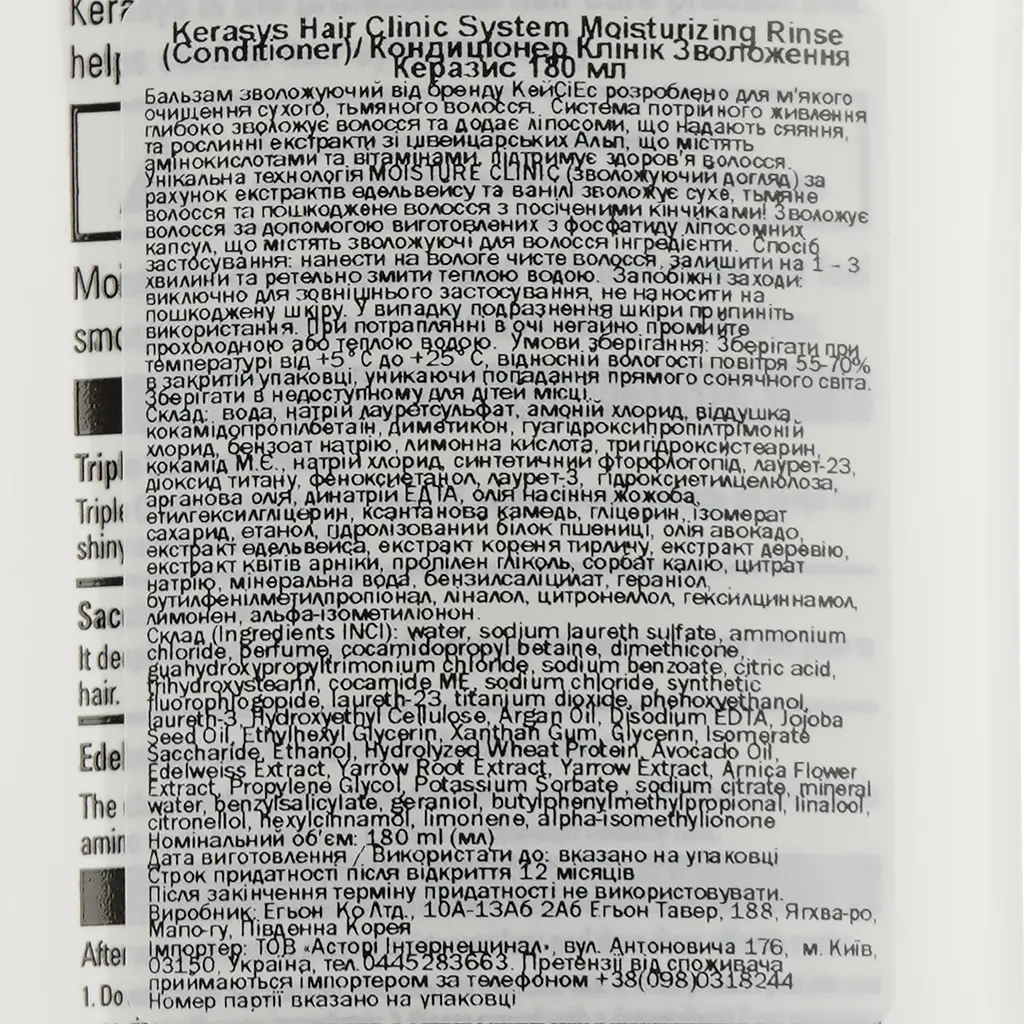 Kerasys Hair Clinic System Moisturizing Rinse
(Conditioner)/ Кондиціонер Клінік Зволоження
Керазис 180 мл
Бальзам зволожуючий від бренду КейСіЕс розроблено для м'якого
очищення сухого, тьмяного волосся. Система потрійного живлення
глибоко зволожує волосся та додає ліпосоми, що надають сяяння,
та рослинні екстракти зі швейцарських Альп, що містять
амінокислотами та вітамінами, підтримує здоров'я волосся.
Унікальна технологія MOISTURE CLINIC (зволожуючий догляд) за
рахунок екстрактів едельвейсу та ванілі зволожує сухе, тьмяне
волосся та пошкоджене волосся з посіченими кінчиками! Зволожує
волосся за допомогою виготовлених з фосфатиду ліпосомних
капсул, що містять зволожуючі для волосся інгредієнти. Спосіб
застосування: нанести на вологе чисте волосся, залишити на 1 - 3
хвилини та ретельно змити теплою водою. Запобіжні заходи:
виключно для зовнішнього застосування, не наносити на
пошкоджену шкіру. У випадку подразнення шкіри припиніть
використання. При потраплянні в очі негайно промийте
прохолодною або теплою водою. Умови зберігання: Зберігати при
температурі від +5°С до +25°С, відносній вологості повітря 55-70%
в закритій упаковці, уникаючи попадання прямого сонячного світа.
Зберігати в недоступному для дітей місці.
Склад: вода, натрій лауретсульфат, амоній хлорид, віддушка,
кокамідопропілбетаїн, диметикон, гуагідроксипропілтрімоній
хлорид, бензоат натрію, лимонна кислота, тригідроксистеарин,
кокамід М.Є., натрій хлорид, синтетичний фторфлогопід, лаурет-23,
діоксид титану, феноксиетанол, лаурет-3, гідроксиетилцелюлоза,
арганова олія, динатрій ЕДТА, олія насіння жожоба,
етилгексилгліцерин, ксантанова камедь, гліцерин, ізомерат
сахарид, етанол, гідролізований білок пшениці, олія авокадо,
екстракт едельвейса, екстракт кореня тирличу, екстракт деревію,
екстракт квітів арніки, пропілен гліколь, сорбат калію, цитрат
натрію, мінеральна вода, бензилсаліцилат, гераніол,
бутилфенілметилпропіонал, ліналол, цитронеллол, гексилциннамол,
лимонен, альфа-ізометиліонон.
Склад (Ingredients INCI): water, sodium laureth sulfate, ammonium
chloride, perfume, cocamidopropyl betaine, dimethicone,
guahydroxypropyltrimonium chloride, sodium benzoate, citric acid,
trihydroxystearin, cocamide ME, sodium chloride, synthetic
fluorophlogopide, laureth-23, titanium dioxide, phenoxyethanol,
laureth-3, Hydroxyethyl Cellulose, Argan Oil, Disodium EDTA, Jojoba
Seed Oil, Ethylhexyl Glycerin, Xanthan Gum, Glycerin, Isomerate
Saccharide, Ethanol, Hydrolyzed Wheat Protein, Avocado Oil,
Edelweiss Extract, Yarrow Root Extract, Yarrow Extract, Arnica Flower
Extract, Propylene Glycol, Potassium Sorbate , sodium citrate, mineral
water, benzylsalicylate, geraniol, butylphenylmethylpropional, linalool,
citronellol, hexylcinnamol, limonene, alpha-isomethylionone
Номінальний об'єм: 180 ml (мл)
Дата виготовлення / Використати до: вказано на упаковці
Строк придатності після відкриття 12 місяців
Після закінчення терміну придатності не використовувати.
Виробник: Егьон Ко Лтд., 10А-13А6 2А6 Егьон Тавер, 188, Ягхва-ро,
Мапо-гу, Південна Корея
Імпортер: ТОВ «Асторі Інтернешинал», вул. Антоновича 176, м. Київ,
03150, Україна, тел.0445283663. Претензії від споживача
приймаються імпортером за телефоном +38(098)0318244
Номер партії вказано на упаковці
Kera
help
Moi
smo
Tripl
Triple
shiny
Sac
It de
hair.
Edel
The
amin
After
1. Do